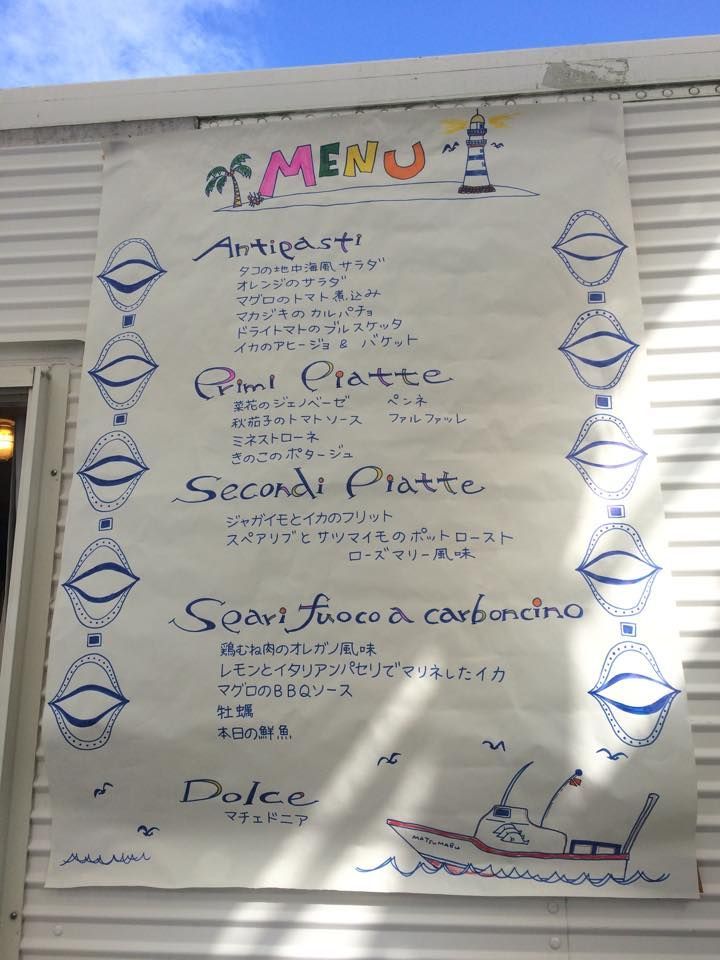 MENU
Antipasti
タコの地中海風サラダ
オレンジのサラダ
マグロのトマト煮込み
マカジキのカルパチョ
ドライトマトのブルスケッタ
イカのアヒージョ & バケット
Primi Piatte
菜花のジェノベーゼ ペンネ
秋茄子のトマトソース ファルファッレ
ミネストローネ
きのこのポタージュ
Secondi Piatte
ジャガイモとイカのフリット
スペアリブとサツマイモのポットロースト
ローズマリー風味
Seari fuoco a carboncino
鶏むね肉のオレガノ風味
レモンとイタリアンパセリでマリネしたイカ
マグロのBBQソース
牡蠣
本日の鮮魚
Dolce
マチェドニア
MATSUMARU